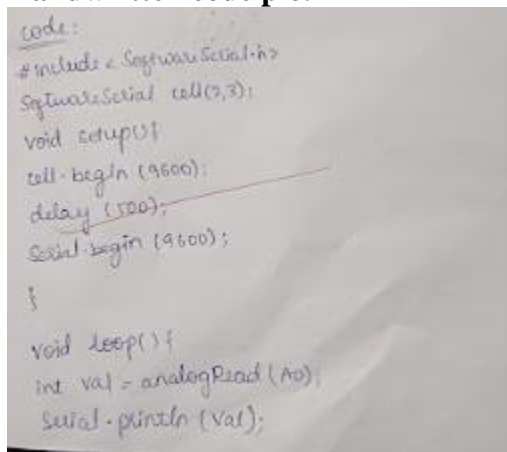 code:
#include < SoftwareSerial.h>
SoftwareSerial cell(2,3);
void setup(){
cell.begin (9600);
delay (500);
Serial.begin (9600);
}
void loop(){
int val = analogRead (A0);
Serial.println (val);